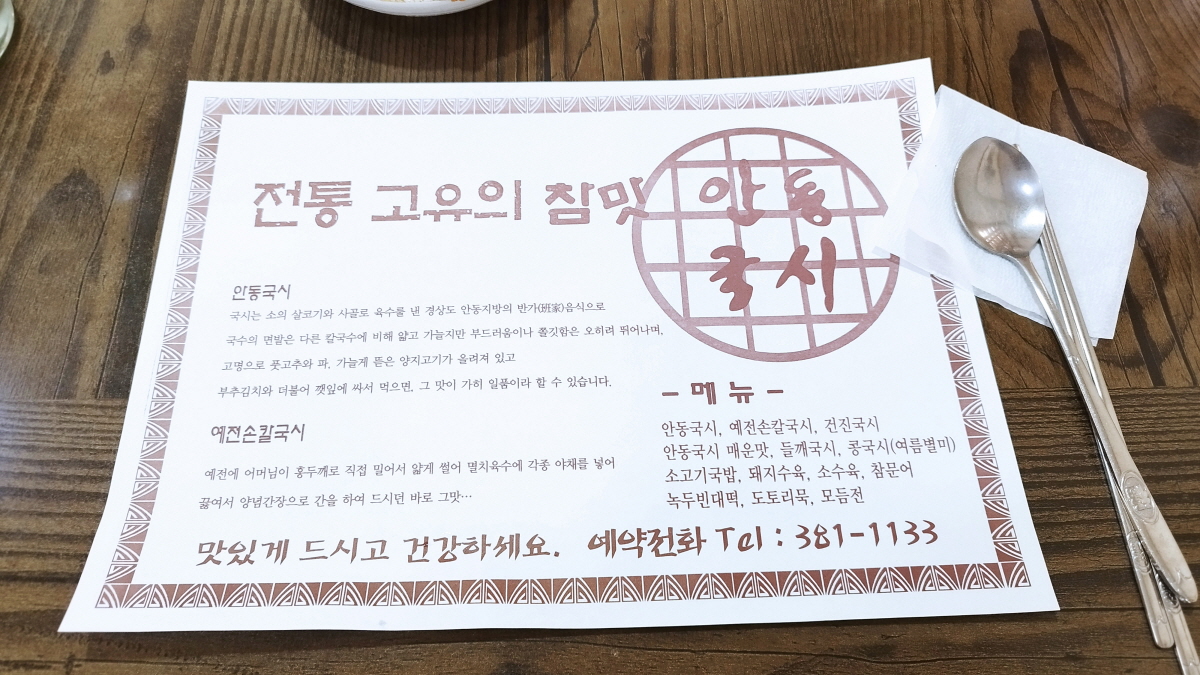 전통 고유의 참맛
안동
국시
안동국시
국시는 소의 살코기와 사골로 육수를 낸 경상도 안동지방의 반가(班家)음식으로
국수의 면발은 다른 칼국수에 비해 얇고 가늘지만 부드러움이나 쫄깃함은 오히려 뛰어나며,
고명으로 풋고추와 파, 가늘게 뜯은 양지고기가 올려져 있고
부추김치와 더불어 깻잎에 싸서 먹으면, 그 맛이 가히 일품이라 할 수 있습니다.
예전손칼국시
예전에 어머님이 홍두깨로 직접 밀어서 얇게 썰어 멸치육수에 각종 야채를 넣어
끓여서 양념간장으로 간을 하여 드시던 바로 그맛…
- 메 뉴 -
안동국시, 예전손칼국시, 건진국시
안동국시 매운맛, 들깨국시, 콩국시(여름별미)
소고기국밥, 돼지수육, 소수육, 참문어
녹두빈대떡, 도토리묵, 모듬전
맛있게 드시고 건강하세요. 예약전화 Tel : 381-1133